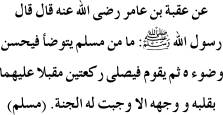 عن عقبة بن عامر رضى الله عنه قال قال
رسول الله ﷺ: ما من مسلم يتوضأ فيحسن
وضوء ه ثم يقوم فيصلى ركعتين مقبلا عليهما
بقلبه و وجهه الا وجبت له الجنة. (مسلم)